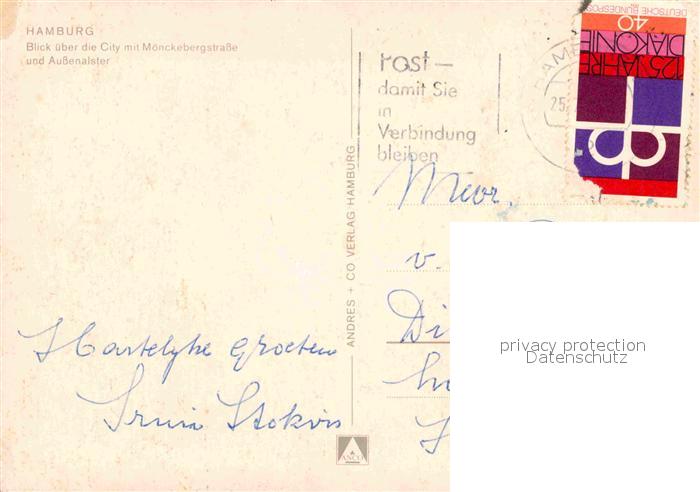 HAMBURG
Blick über die City mit Mönckebergstraße
und Außenalster
Post –
damit Sie
in
Verbindung
bleiben
25.
DEUTSCHE BUNDESPOST
40
DIAKONIE
125 JAHRE
ANDRES + CO VERLAG HAMBURG
Mevr.
v.
Di
Hartelyke groeten
Stokvis
privacy protection
Datenschutz
ANCO